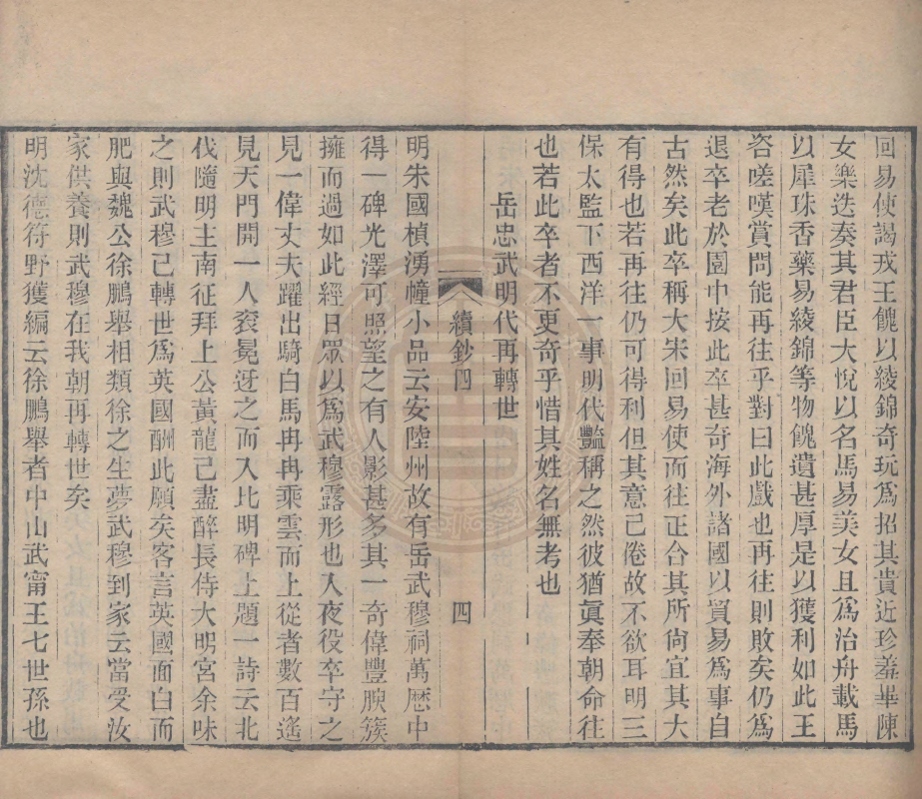 回易使謁戎王餽以綾錦奇玩爲招其貴近珍羞畢陳
女樂迭奏其君臣大悅以名馬易美女且爲治舟載馬
以犀珠香藥易綾錦等物餽遺甚厚是以獲利如此王
咨嗟嘆賞問能再往乎對曰此戲也再往則敗矣仍爲
退卒老於園中按此卒甚奇海外諸國以貿易爲事自
古然矣此卒稱大宋回易使而往正合其所尙宜其大
有得也若再往仍可得利但其意已倦故不欲耳明三
保太監下西洋一事明代豔稱之然彼猶眞奉朝命往
也若此卒者不更奇乎惜其姓名無考也
岳忠武明代再轉世
續鈔四
四
明朱國楨湧幢小品云安陸州故有岳武穆祠萬歷中
得一碑光澤可照望之有人影甚多其一奇偉豐腴簇
擁而過如此經日眾以爲武穆露形也入夜役卒守之
見一偉丈夫躍出騎白馬冉冉乘雲而上從者數百遙
見天門開一人袞冕迓之而入比明碑上題一詩云北
伐隨明主南征拜上公黃龍已盡醉長侍大明宮余味
之則武穆已轉世爲英國酬此願矣客言英國面白而
肥與魏公徐鵬舉相類徐之生夢武穆到家云當受汝
家供養則武穆在我朝再轉世矣
明沈德符野獲編云徐鵬舉者中山武甯王七世孫也